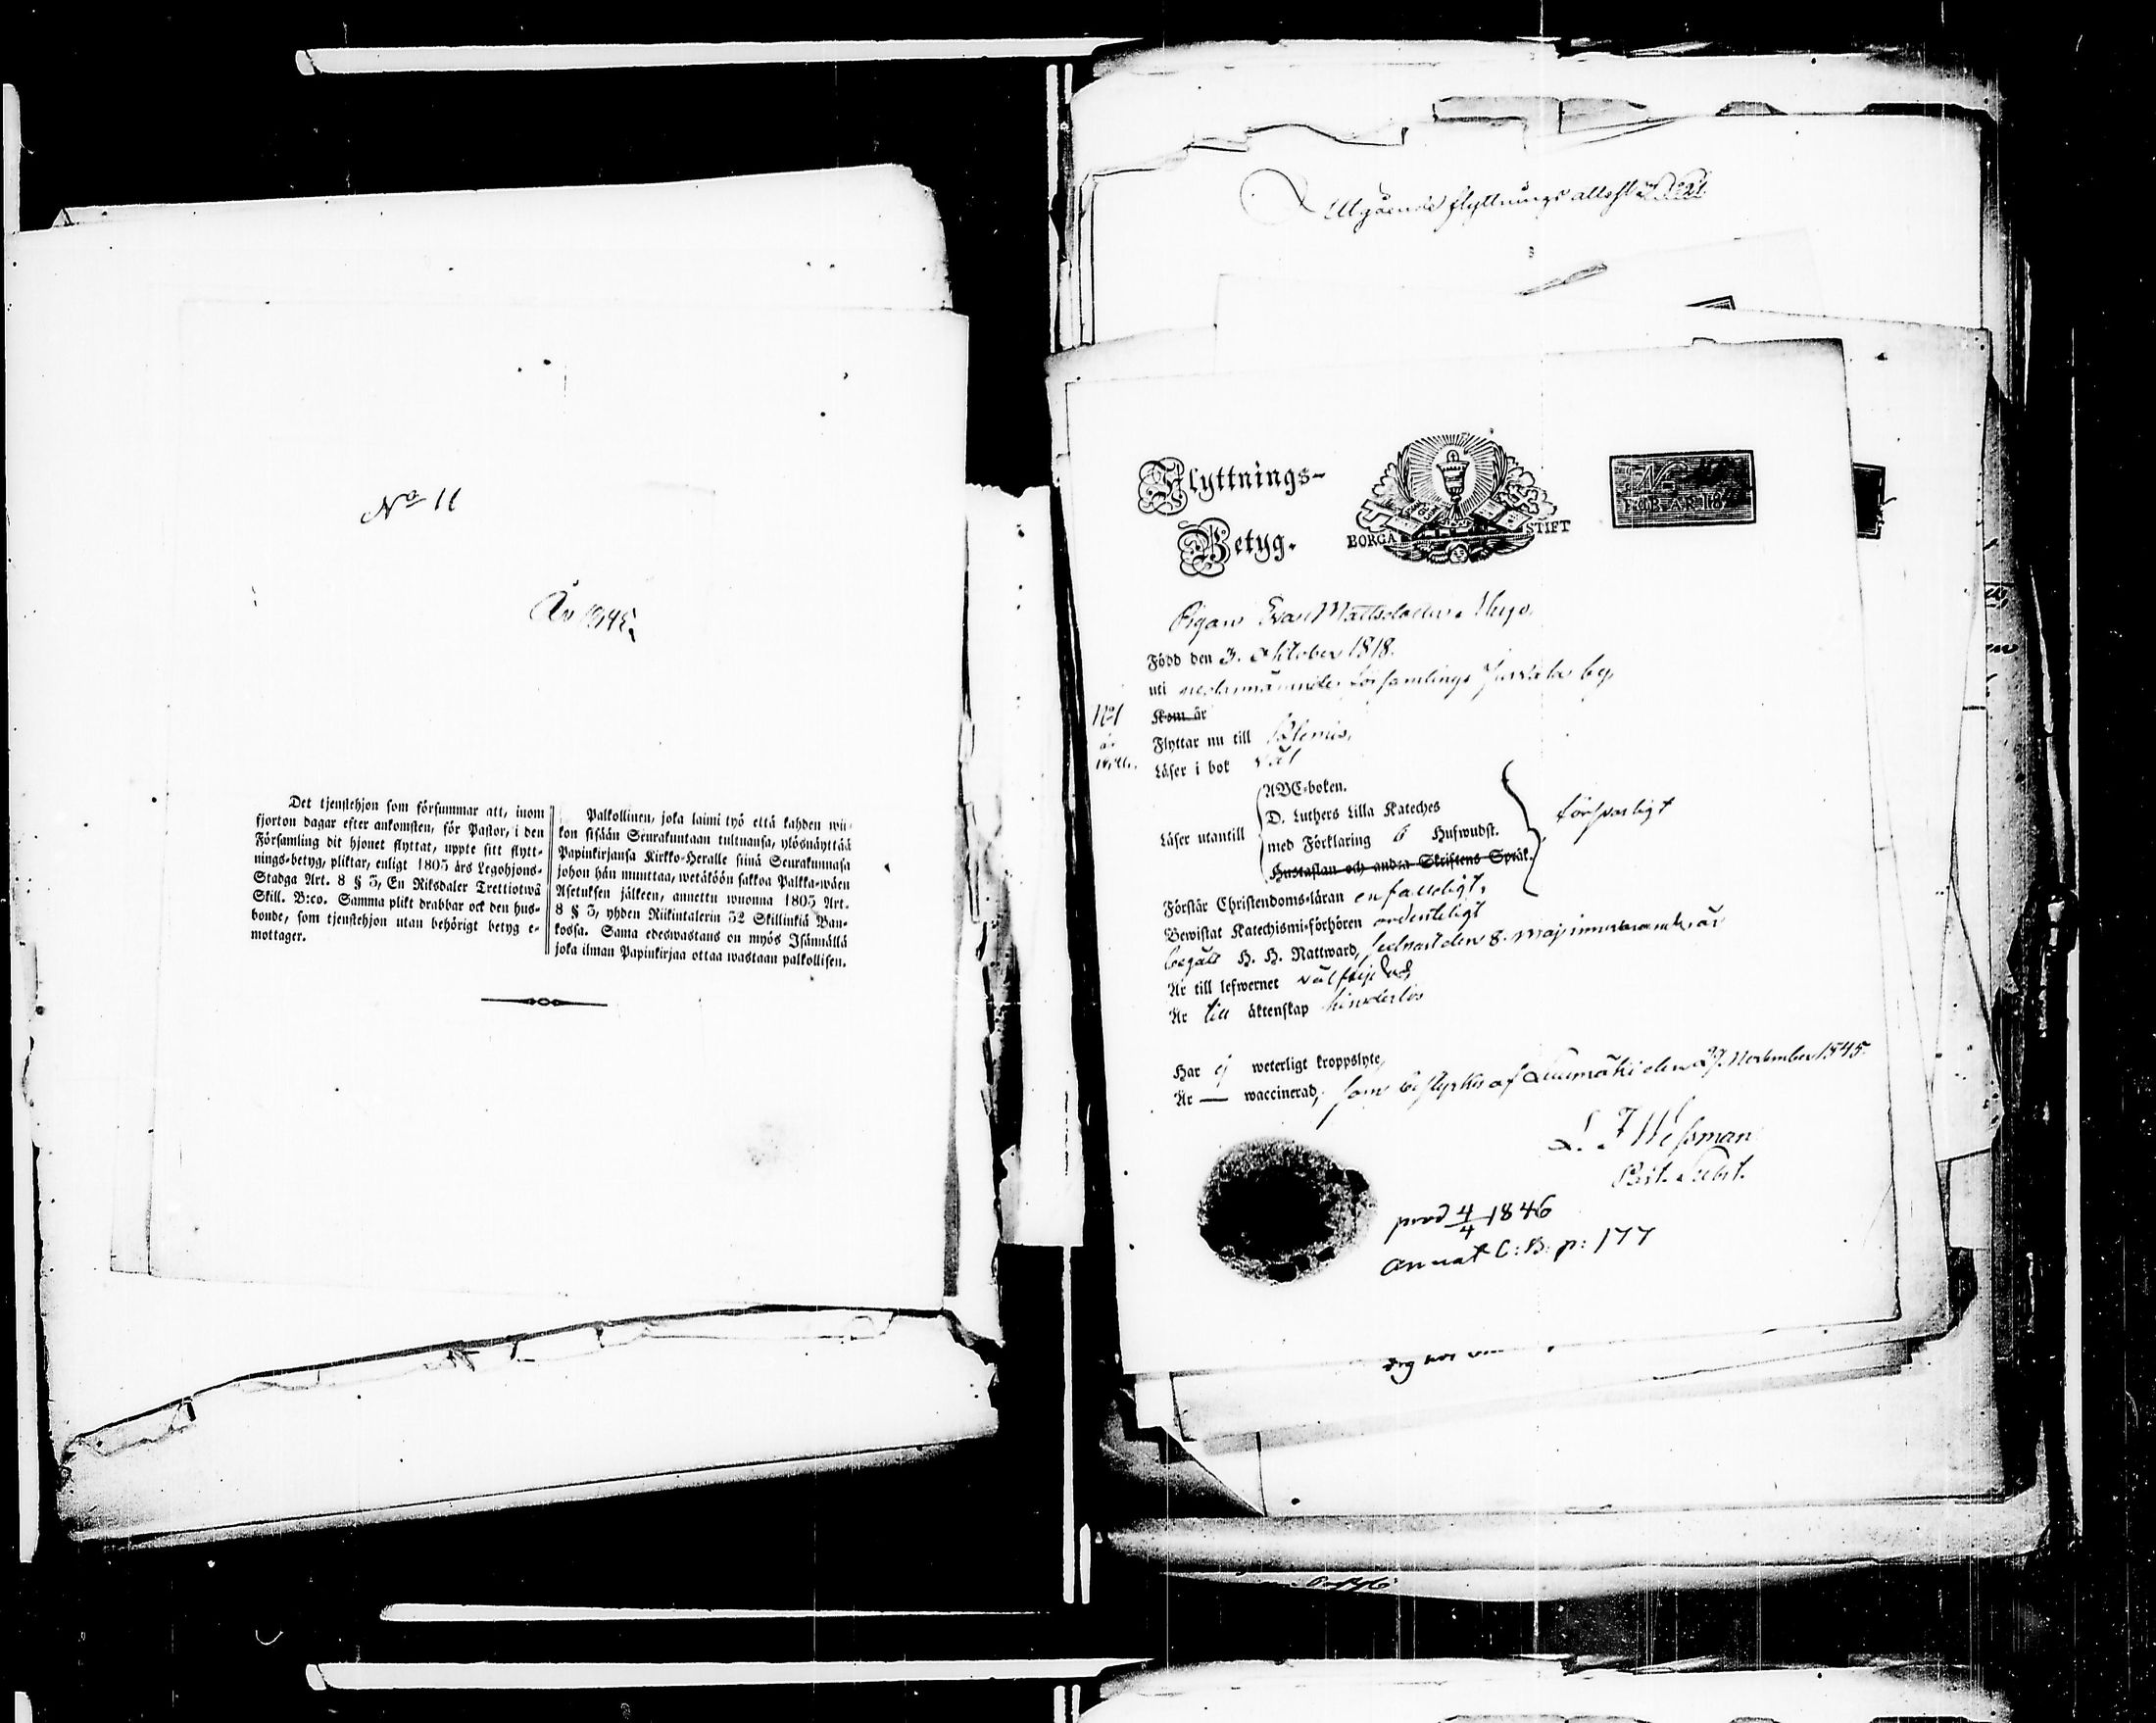 No 11
År 1845.
Det tjenstehjon som försummar att, inom
fjorton dagar efter ankomsten, för Pastor, i den
Församling dit hjonet flyttat, uppte sitt flytt-
nings-betyg, pliktar, enligt 1805 års Legohjons-
Stadga Art. 8 § 3, En Riksdaler Trettiotwå
Skill. B:co. Samma plikt drabbar ock den hus-
bonde, som tjenstehjon utan behörigt betyg e-
mottager.
Palkollinen, joka laimi lyö että kahden wii-
kon sisään Seurakuntaan tultuansa, ylösnäyttää
Papinkirjansa Kirkko-Heralle siinä Seurakunnasa
johon hän muuttaa, wetäköön sakkoa Palkka-wäen
Asetuksen jälkeen, annettu wuonna 1805 Art.
8 § 3, yhden Riikintalerin 32 Skillinkiä Ban-
kossa. Sama edeswastaus on myös Isännällä
joka ilman Papinkirjaa ottaa wastaan palkollisen.
Utgående flyttnings attest
Flyttnings-
Betyg.
BORGA STIFT
No
FÖR ÅR 18
Pigan Eva Mattsdotter
Född den 3. Oktober 1818.
uti nedannämnde Församlings by,
No 1
Kom år
Flyttar nu till
Läser i bok väl
ABC-boken.
D. Luthers Lilla Kateches
Läser utantill
med Förklaring 6 Hufwudst.
försvarligt
Hustaflan och andra Skriftens Språk.
Förstår Christendoms-läran enfalldigt,
Bewistat Katechismi-förhören ordenteligt
begått H. H. Nattward, sednast den 8. Maj innevarande år
Är till lefwernet välfrejdad,
Är till äktenskap hinderlös
Har ej weterligt kroppslyte,
Är — waccinerad, som bestyrkes af Luumäki den 27. November 1845.
L. F. Wessman
prod 4/4 1846
annot C: B: p: 177